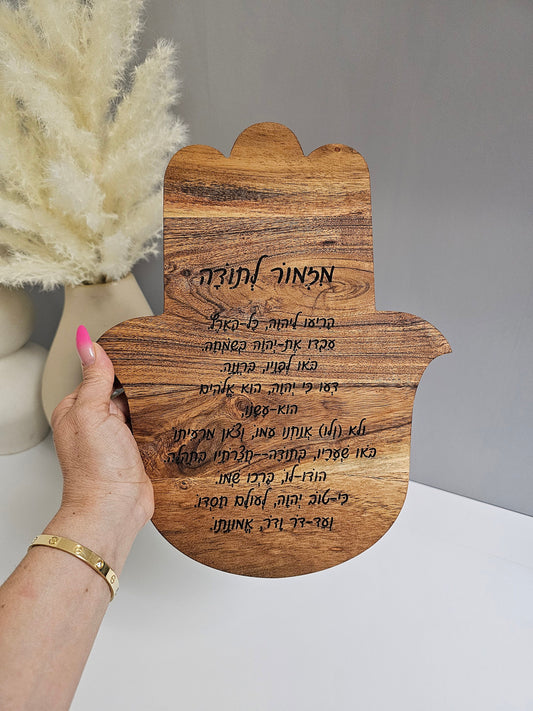 מִזְמוֹר לְתוֹדָה
הָרִיעוּ לַיהוָה, כָּל-הָאָרֶץ.
עִבְדוּ אֶת-יְהוָה בְּשִׂמְחָה.
בֹּאוּ לְפָנָיו, בִּרְנָנָה.
דְּעוּ כִּי יְהוָה, הוּא אֱלֹהִים
הוּא-עָשָׂנוּ,
ולא (וְלוֹ) אֲנַחְנוּ עַמּוֹ, וְצֹאן מַרְעִיתוֹ
בֹּאוּ שְׁעָרָיו, בְּתוֹדָה--חֲצֵרֹתָיו בִּתְהִלָּה
הוֹדוּ-לוֹ, בָּרְכוּ שְׁמוֹ.
כִּי-טוֹב יְהוָה, לְעוֹלָם חַסְדּוֹ.
וְעַד-דֹּר וָדֹר, אֱמוּנָתוֹ.